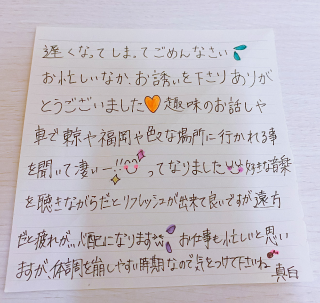 遅くなってしまってごめんなさい
お忙しいなか、お誘いを下さりありが
とうございました🧡趣味のお話しや
車で東京や福岡や色々な場所に行かれる事
を聞いて凄いー!!ってなりました 好きな音楽
を聴きながらだとリフレッシュが出来て良いですが遠方
だと疲れが、心配になります お仕事も忙しいと思い
ますが、体調を崩しやすい時期なので気をつけて下さいね
真白